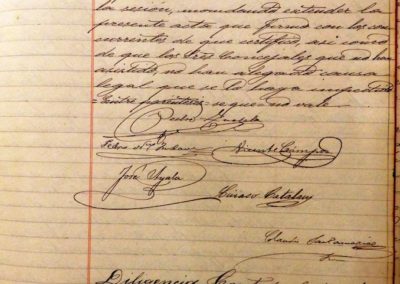 la sesión, mandando extender la
presente acta que firmó con los con
currentes de que certifico, asi como
de que los tres Concejales que no han
asistido, no han alegado causa
legal que se lo haya impedido
=Entre parentesis= se que= no vale
Pedro
Vicente Campos
José Ayala
Ciriaco Catalan
Claudio
Diligencia